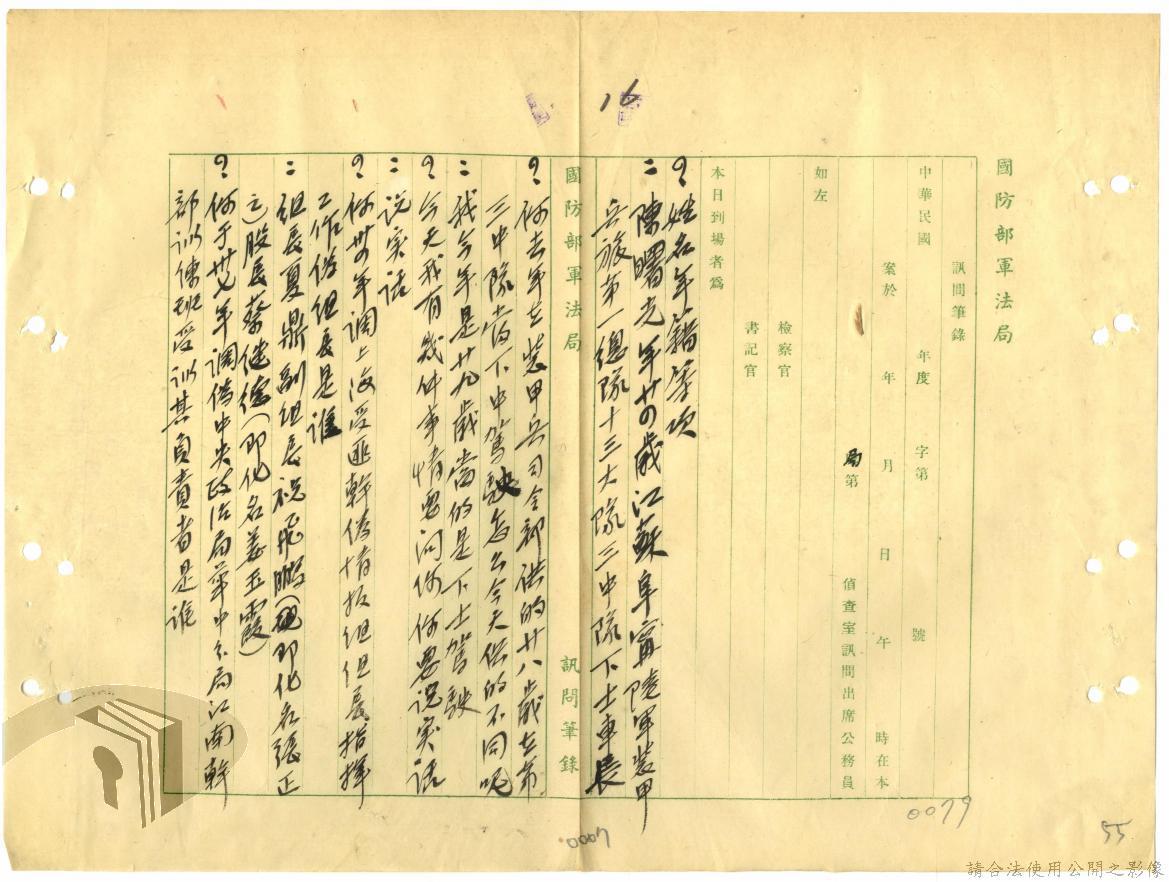 16
國防部軍法局
訊問筆錄
中華民國 年度 字第 號
案於 年 月 日 午 時在本
局第 偵查室訊問出席公務員
如左
檢察官
書記官
本日到場者爲
?姓名年籍等項
=陳曙光年廿四歲江蘇阜寧陸軍裝甲
兵旅第一總隊十三大隊三中隊下士車長
國防部軍法局 訊問筆錄
?你去年在裝甲兵司令部供的廿八歲在第
三中隊當下中駕駛怎么今天供的不同呢
=我今年是廿九歲當的是下士駕駛
?今天我有幾件事情要问你你要说实话
=说实话
?你卅四年调上海受匪幹偽情报组组長指揮
工作偽组長是谁
=组長夏鼎副组長祝飛 (即化名張正
)股長蔡继德(即化名姜玉霞)
?你于卅七年调偽中央政治局華中分局江南幹
部训傳班受训其負責者是谁
0079
0007
55
請合法使用公開之影像